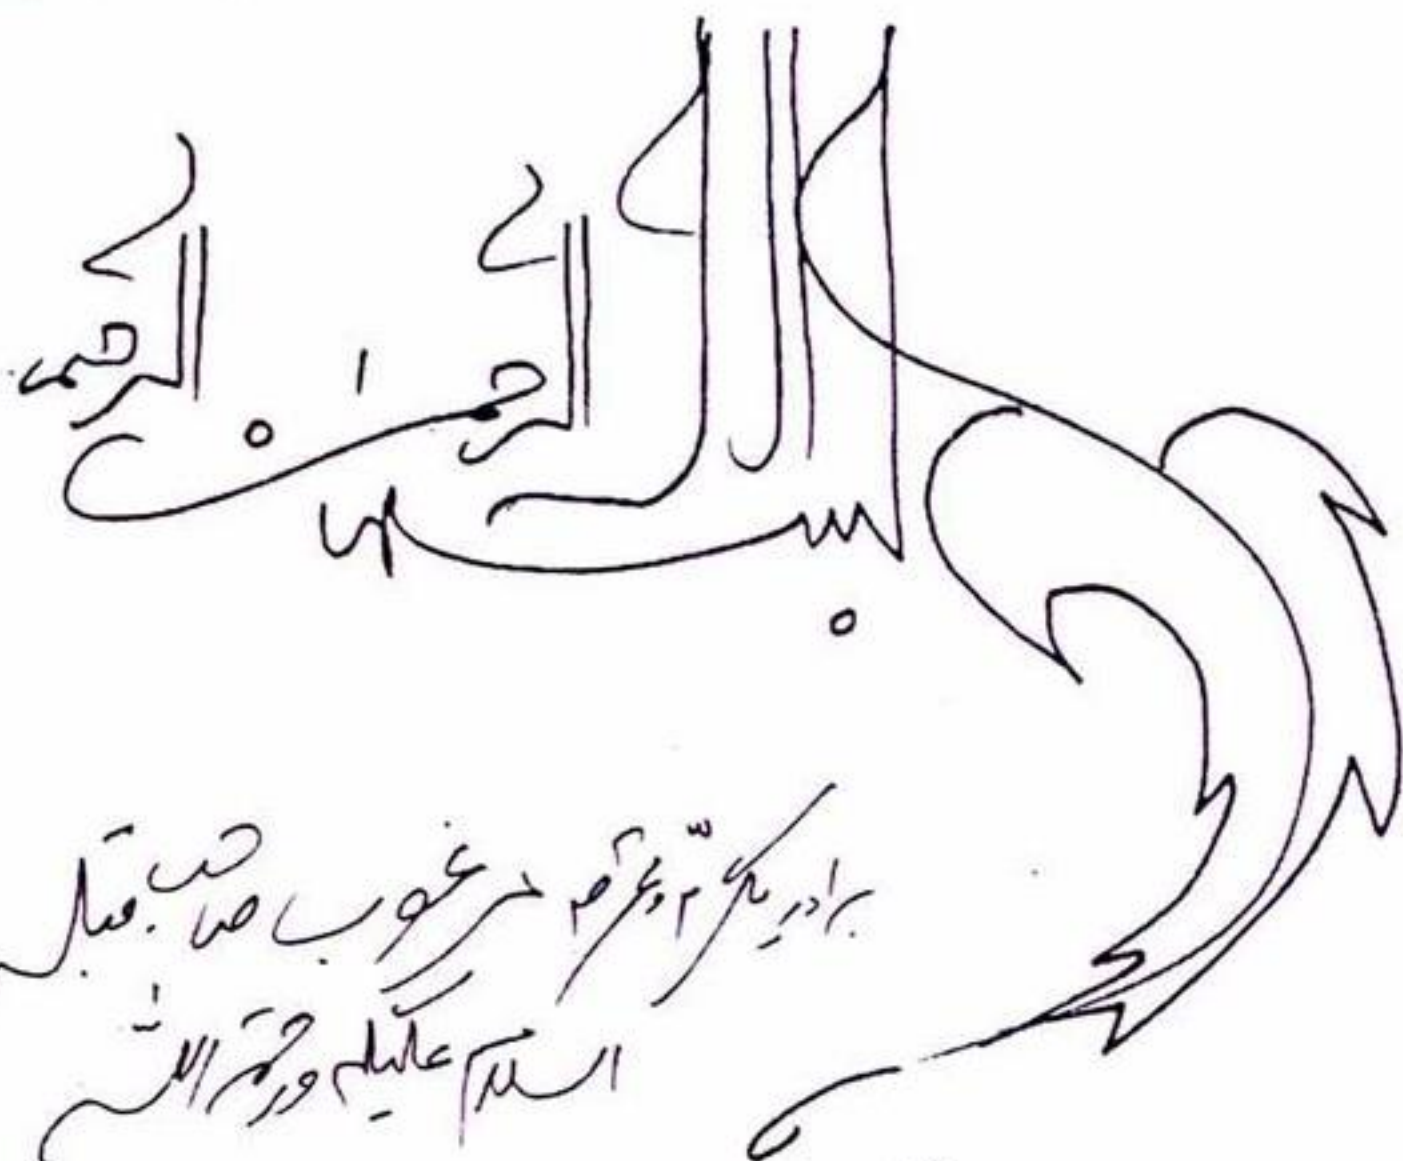 بسم الله الرحمن الرحيم
برادر مکرم و محترم مرغوب صاحب
السلام علیکم ورحمۃ اللہ